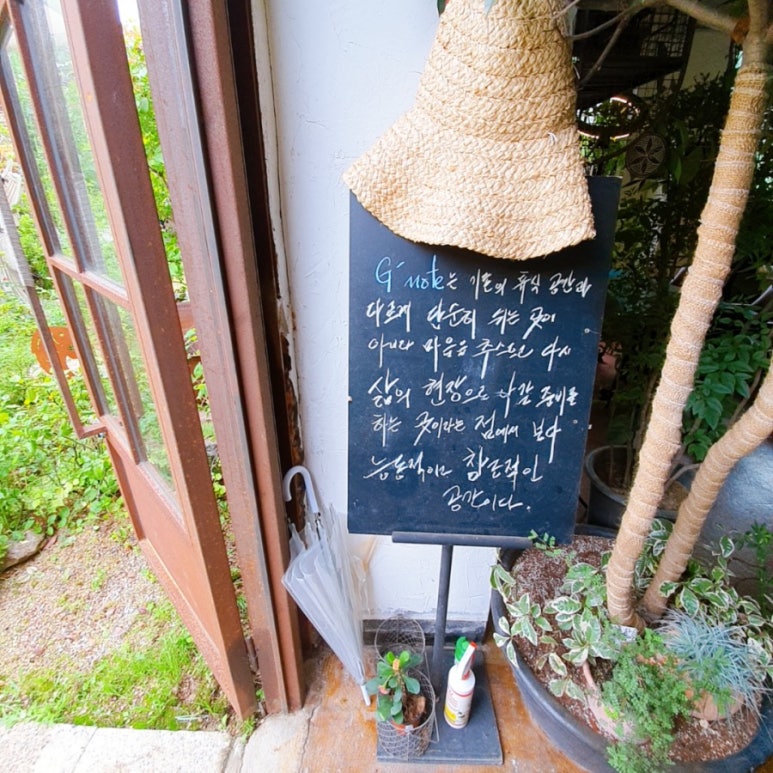 G'note는 기존의 휴식 공간과
다르게 단순히 쉬는 곳이
아니라 마음을 추스르고 다시
삶의 현장으로 나갈 준비를
하는 곳이라는 점에서 보다
능동적이고 창조적인
공간이다.